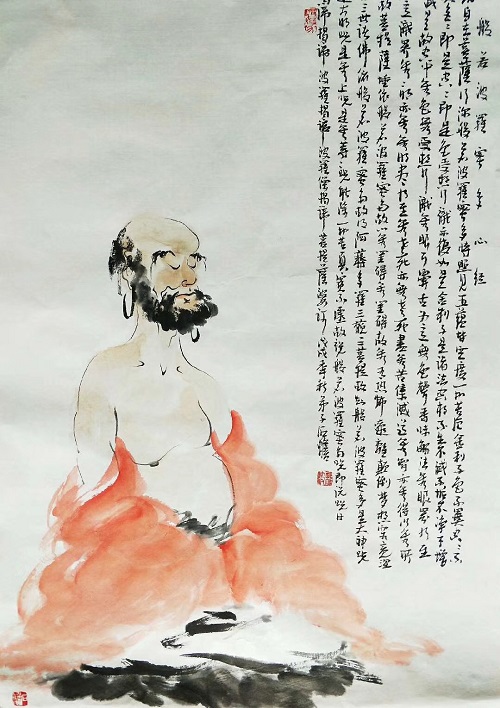 般若波羅蜜多心經
自在菩薩行深般若波羅蜜多時照見五蘊皆空度一切苦厄舍利子色不異空空不
色即是空空即是色受想行識亦復如是舍利子是諸法空相不生不滅不垢不淨不增
減是故空中無色無受想行識無眼耳鼻舌身意無色聲香味觸法無眼界乃至
意識界無無明亦無無明盡乃至無老死亦無老死盡無苦集滅道無智亦無得以無所
故菩提薩埵依般若波羅蜜多故心無罣礙無罣礙故無有恐怖遠離顛倒夢想究竟涅
三世諸佛依般若波羅蜜多故得阿耨多羅三藐三菩提故知般若波羅蜜多是大神咒
是大明咒是無上咒是無等等咒能除一切苦真實不虛故說般若波羅蜜多咒即說咒曰
諦揭諦波羅揭諦波羅僧揭諦菩提薩婆訶 戊戌季秋弟子